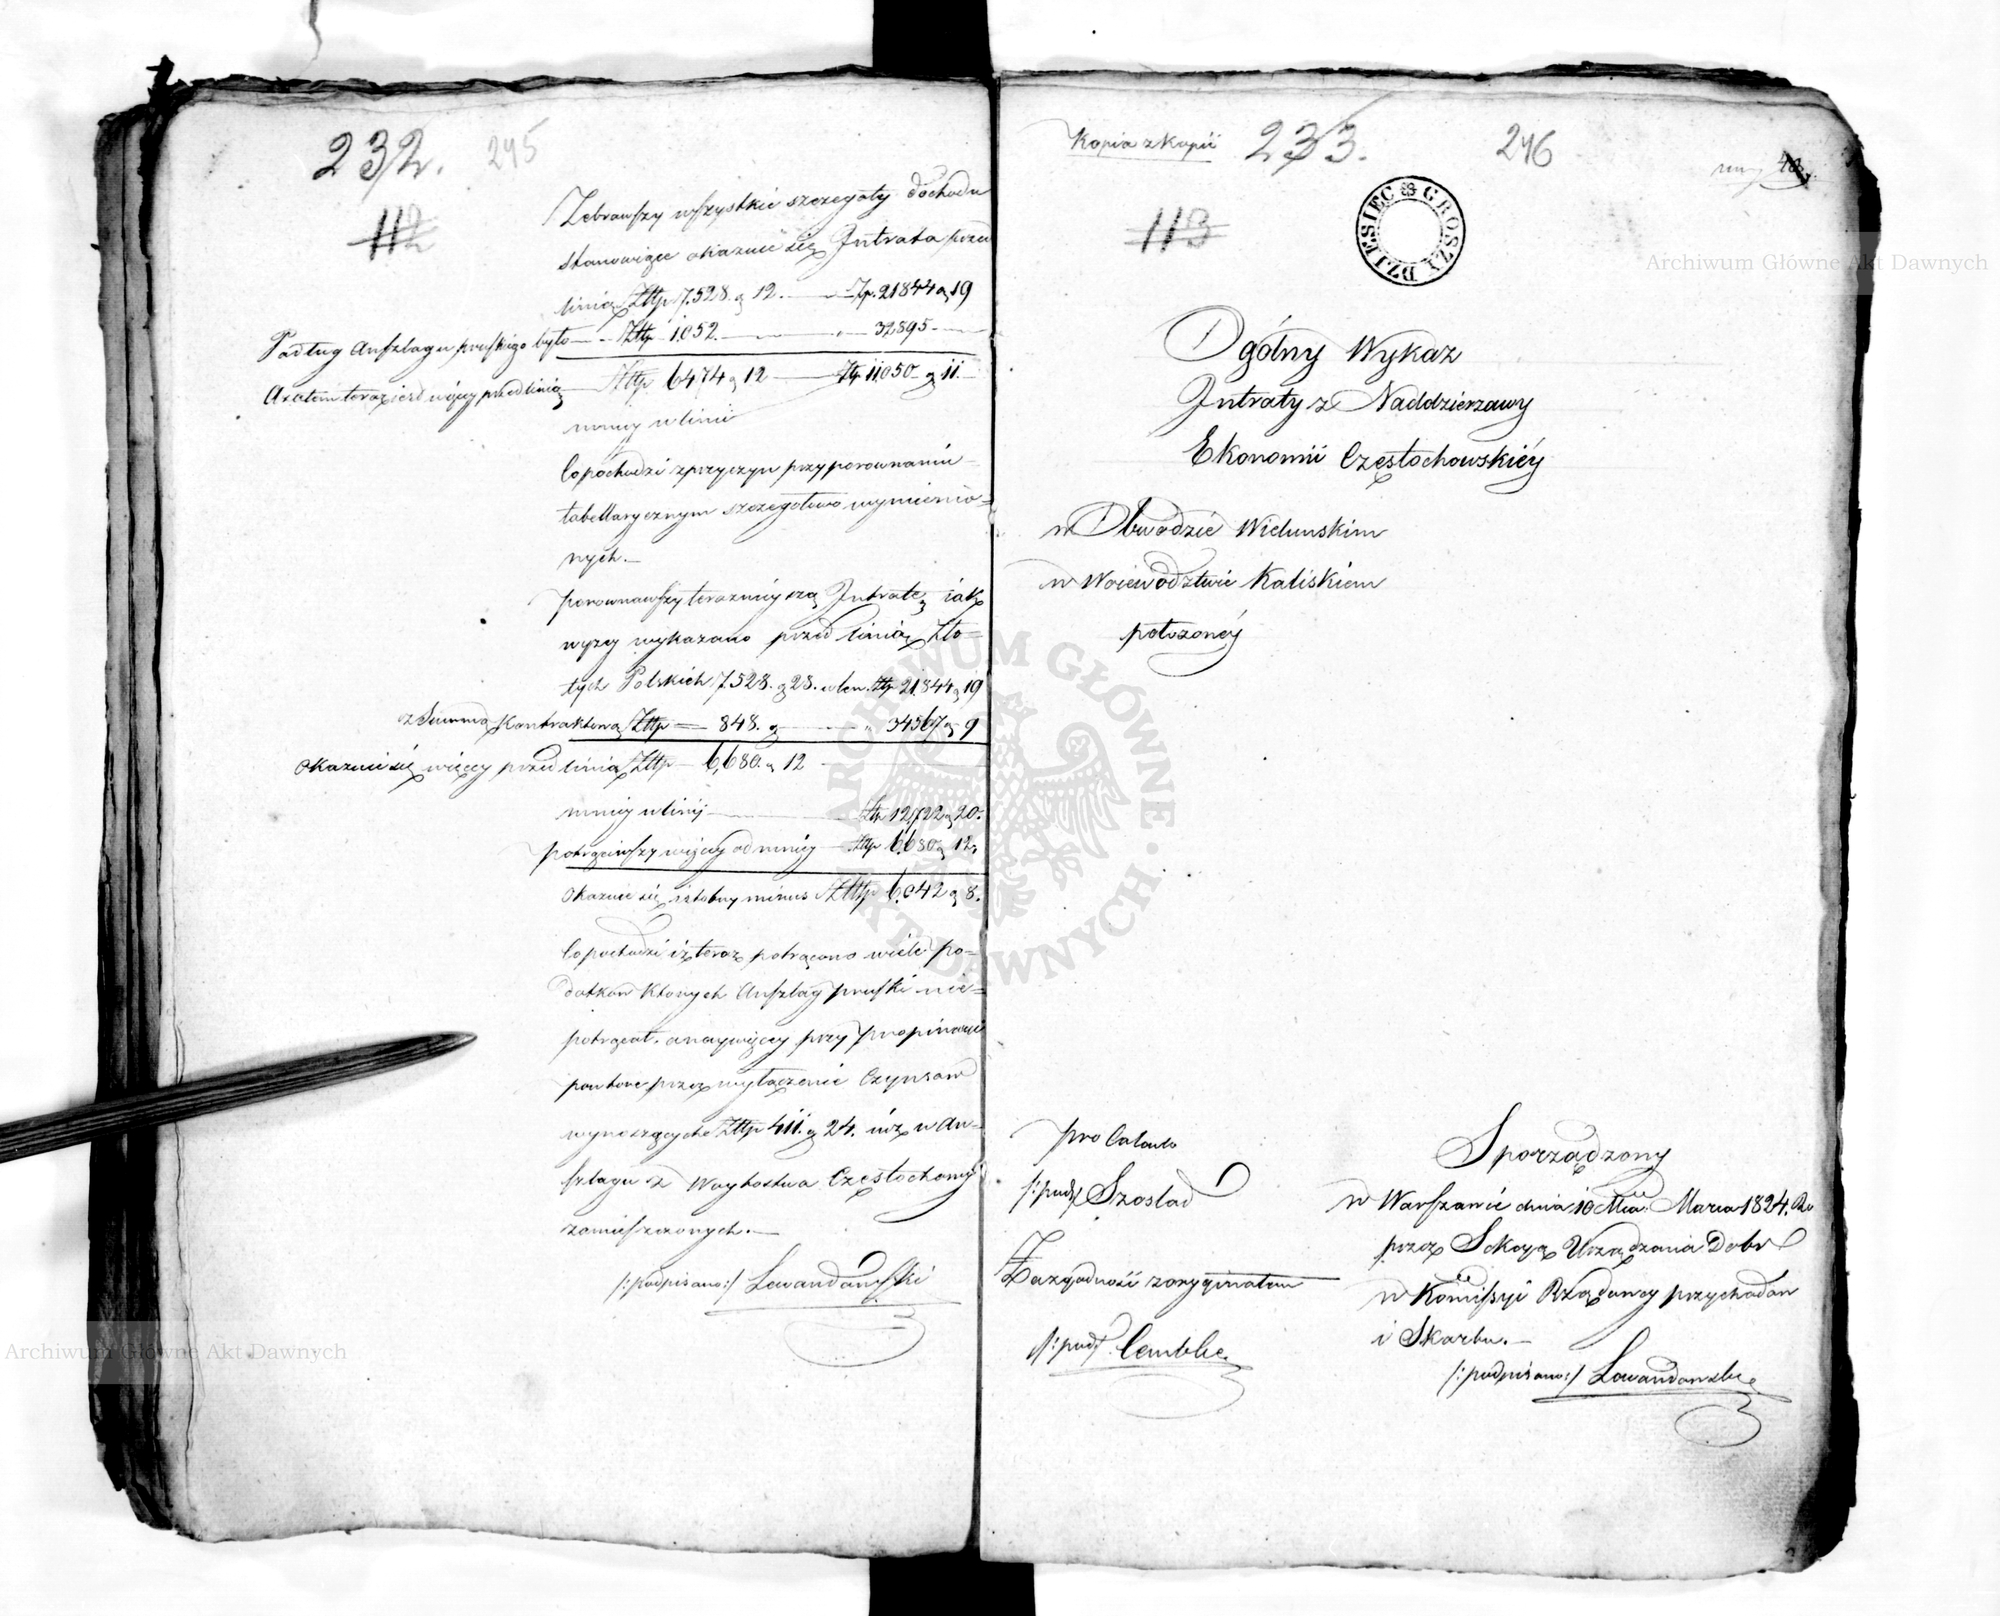 232. 245
112
Zebrawszy wszystkie szczegóły dochodu
stanowiące okazuie się Intrata przed
linią Złtp 7.528. g 12. — Zp. 21844 g 19
Podług Anszlagu pruskiego było — Złtp 1.052. — " — 32895 —
A zatem teraz iest więcey przed linią — Złtp 6474 g 12 — Złp 11.050 g 11
mniey w linii
Co pochodzi z przyczyn przy porownaniu
tabellarycznym szczegółowo wymienio=
nych. —
porownawszy teraznieyszą Intratę iak
wyzey wykazano przed linią Zło=
tych Polskich 7.528. g 28. w len. Złtp 21.844 g 19
z Summą kontraktową Złtp — 848. g — " 34567 g 9
Okazuie się więcey przed linią Złtp — 6,680. g 12
mniey w linij — Złp 12,722 g 20.
potrąciwszy więcey od mniey — Złtp 6.680 g 12.
Okazuie się istotny minus Złtp 6.042 g 8.
Co pochodzi iż teraz potrącono wiele po=
datkow których Anszlag pruski nie=
potrącał. a naywięcey przy propinacyi
przez wyłączenie Czynszow
wynoszących Złtp 411. g 24. iuż w An=
szlagu z Woytostwa Częstochowy
zamieszczonych. —
/:podpisano:/ Lewandowski
Kopia z kopii 233. 246
113
DZIESIEC GROSZY
Ogólny Wykaz
Intraty z Naddzierzawy
Ekonomii Częstochowskiéy
w Obwodzie Wielunskim
w Woiewodztwie Kaliskiem
położonéy
pro Calculo
/:pods Szoslad
Za zgodność z oryginałem
/:pods Cembke
Sporządzony
w Warszawie dnia 10 Mca Marca 1824. Ro
przez Sekcyą Urządzania Dobr
w Kommissyi Rządowey przychodow
i Skarbu. —
/:podpisano:/ Lewandowski
Archiwum Główne Akt Dawnych
Archiwum Główne Akt Dawnych
ARCHIWUM GŁÓWNE AKT DAWNYCH